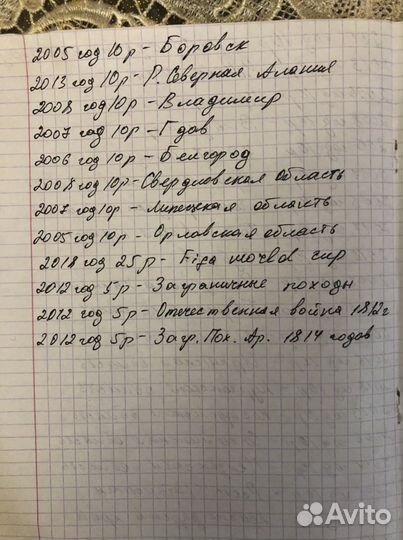 2005 год 10р - Боровск
2013 год 10р - Р. Северная Алания
2008 год 10р - Владимир
2007 год 10р - Гдов
2006 год 10р - Белгород
2008 год 10р - Свердловская область
2007 год 10р - Липецкая область
2005 год 10р - Орловская область
2018 год 25р - Fifa worbd cup
2012 год 5р - Заграничные походы
2012 год 5р - Отечественная война 1812г
2012 год 5р - Загр. Пох. Ар. 1814 годов
Avito